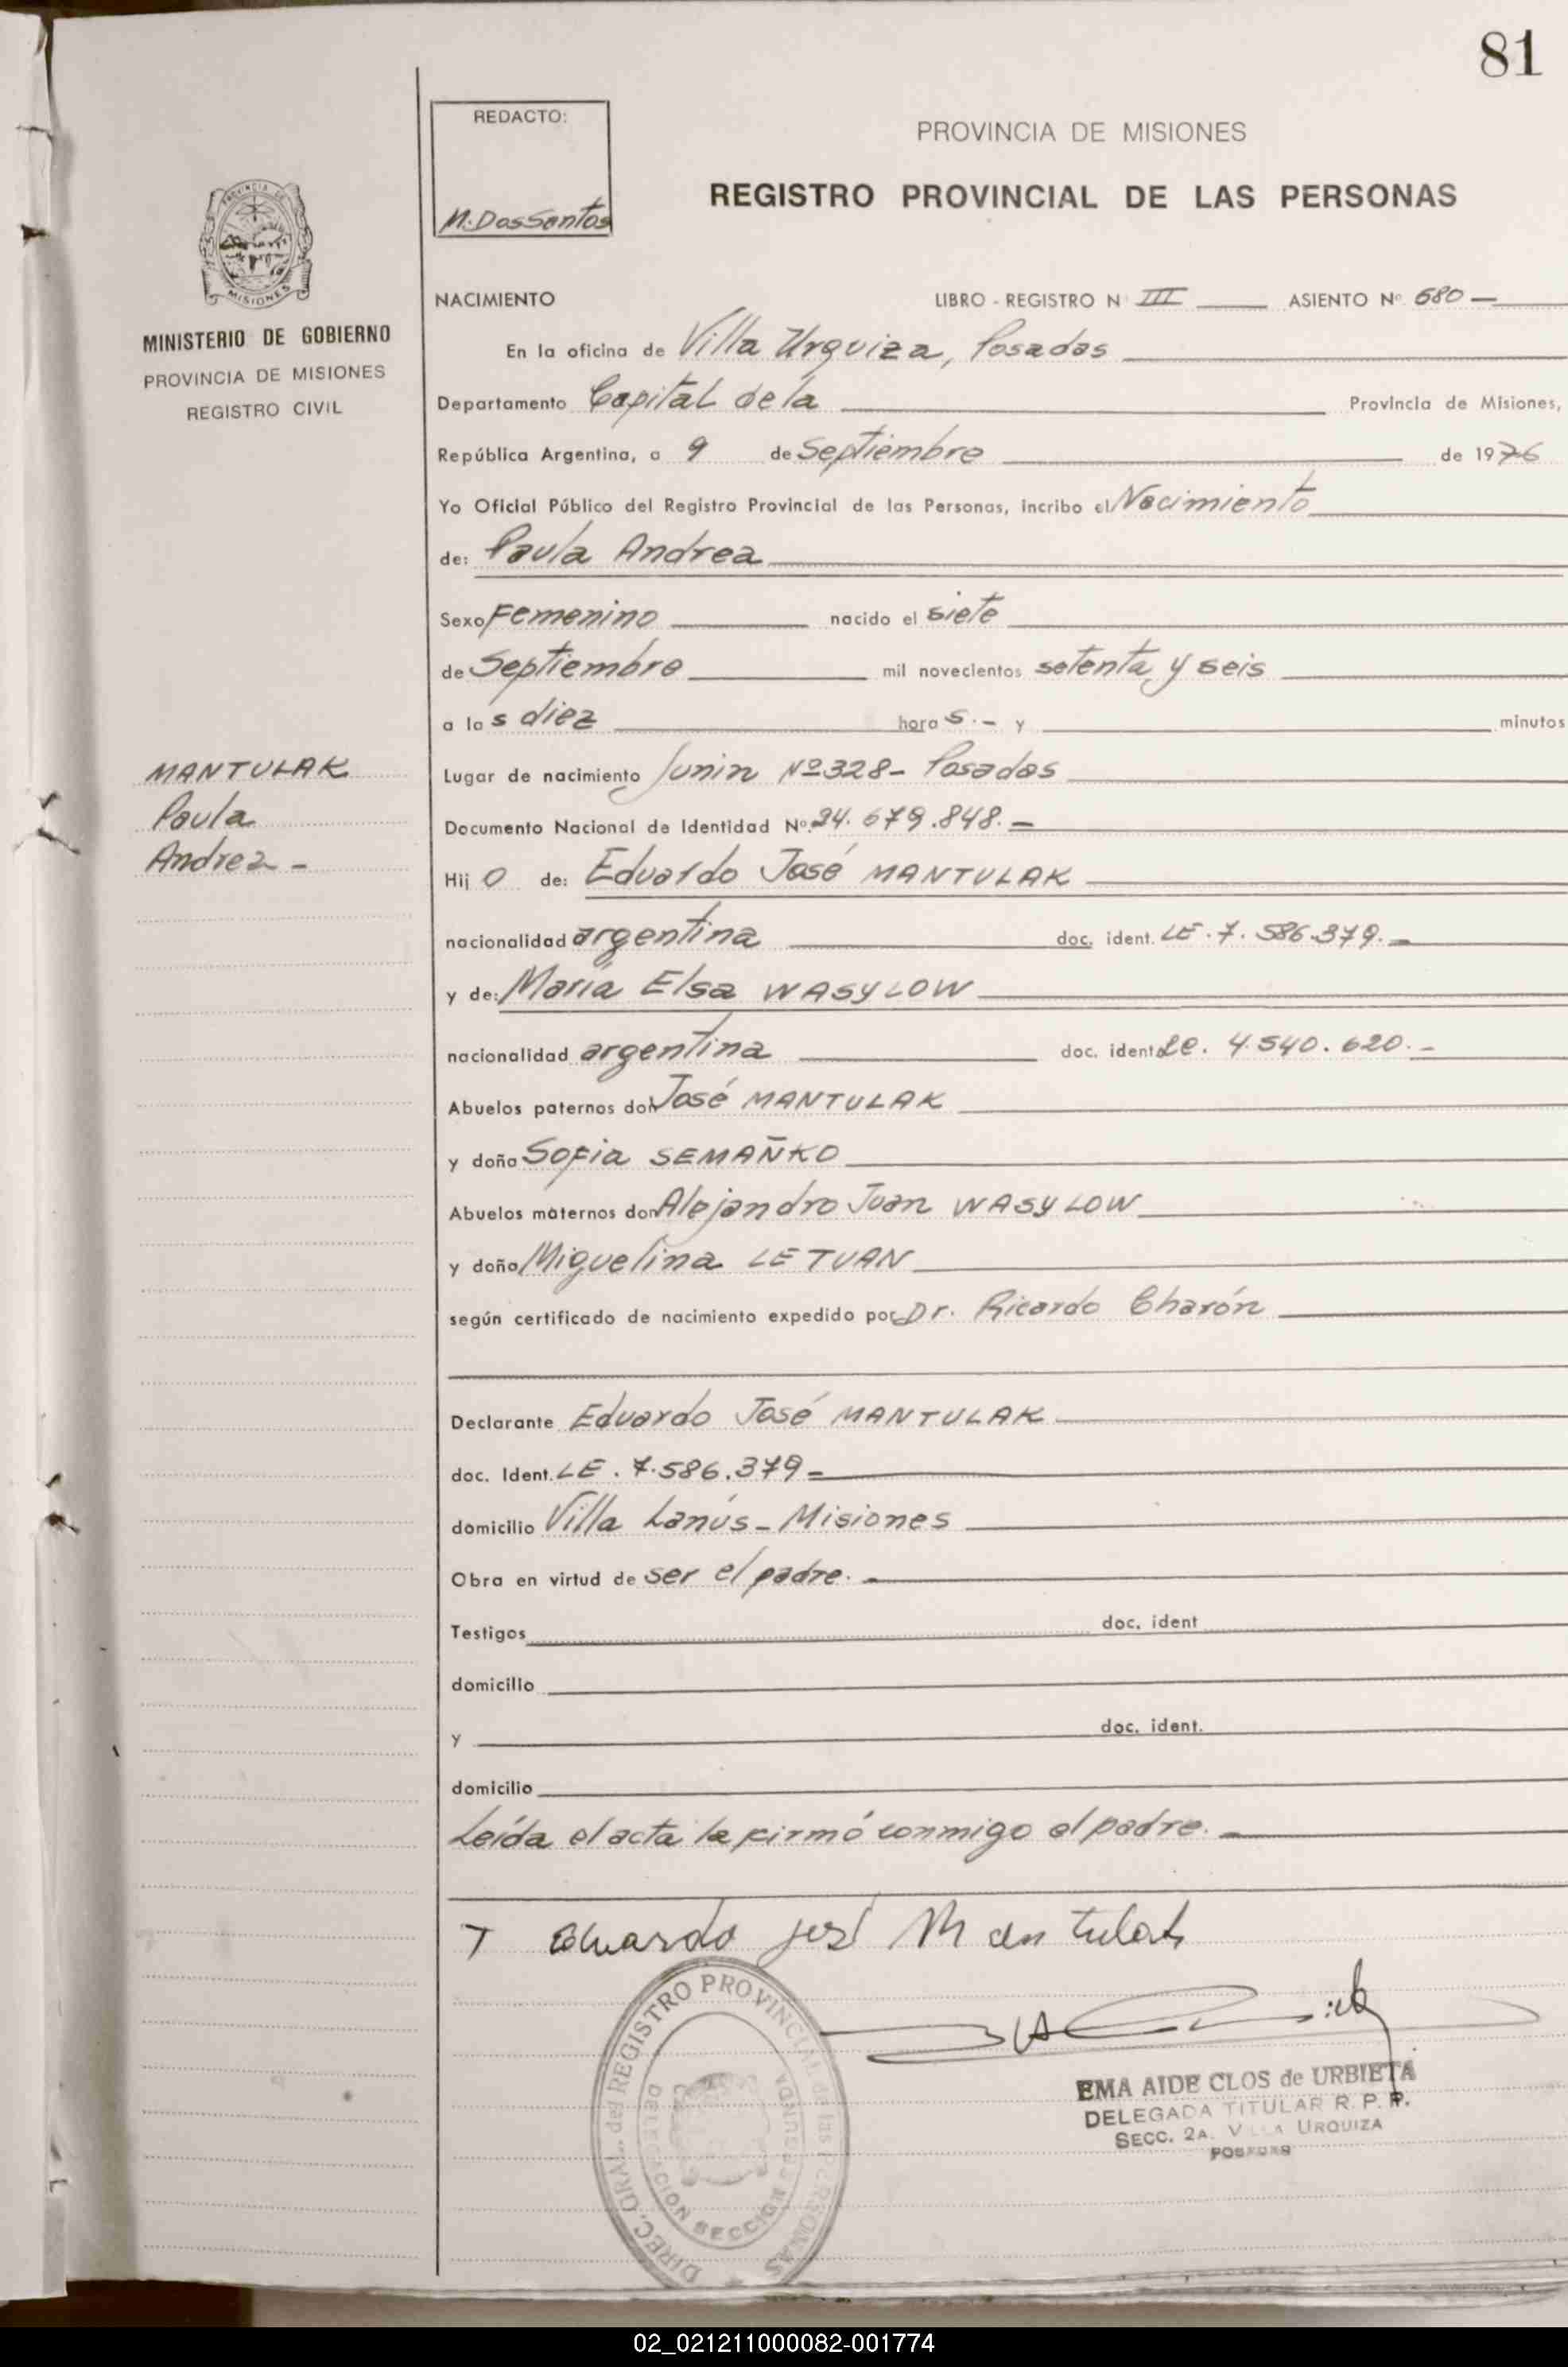 81
REDACTO:
M. Dos Santos
PROVINCIA DE MISIONES
REGISTRO PROVINCIAL DE LAS PERSONAS
PROVINCIA DE
MISIONES
MINISTERIO DE GOBIERNO
PROVINCIA DE MISIONES
REGISTRO CIVIL
NACIMIENTO LIBRO - REGISTRO N III ASIENTO Nº 680 —
En la oficina de Villa Urquiza, Posadas
Departamento Capital de la Provincia de Misiones,
República Argentina, a 9 de Septiembre de 1976
Yo Oficial Público del Registro Provincial de las Personas, incribo el Nacimiento
de: Paula Andrea
Sexo Femenino nacido el siete
de Septiembre mil novecientos setenta y seis
a las diez horas.- y minutos
MANTULAK
Paula
Andrea -
Lugar de nacimiento Junin Nº 328- Posadas
Documento Nacional de Identidad Nº 24.679.848.—
Hijo de: Eduardo José MANTULAK
nacionalidad argentina doc. ident. LE. 7.586.379.—
y de: María Elsa WASYLOW
nacionalidad argentina doc. ident. Lc. 4.540.620.-
Abuelos paternos don José MANTULAK
y doña Sofia SEMAÑKO
Abuelos maternos don Alejandro Juan WASYLOW
y doña Miguelina LETUAN
según certificado de nacimiento expedido por Dr. Ricardo Charón
Declarante Eduardo José MANTULAK
doc. Ident. LE. 7.586.379-
domicilio Villa Lanús - Misiones
Obra en virtud de ser el padre.-
Testigos doc. ident
domicilio
y doc. ident.
domicilio
Leída el acta la firmó conmigo el padre.—
Eduardo José Mantulak
DIREC. GRAL. del REGISTRO PROVINCIAL de las PERSONAS
DELEGACION SECCION SEGUNDA
EMA AIDE CLOS de URBIETA
DELEGADA TITULAR R. P. P.
SECC. 2A. VILLA URQUIZA
POSADAS
02_021211000082-001774